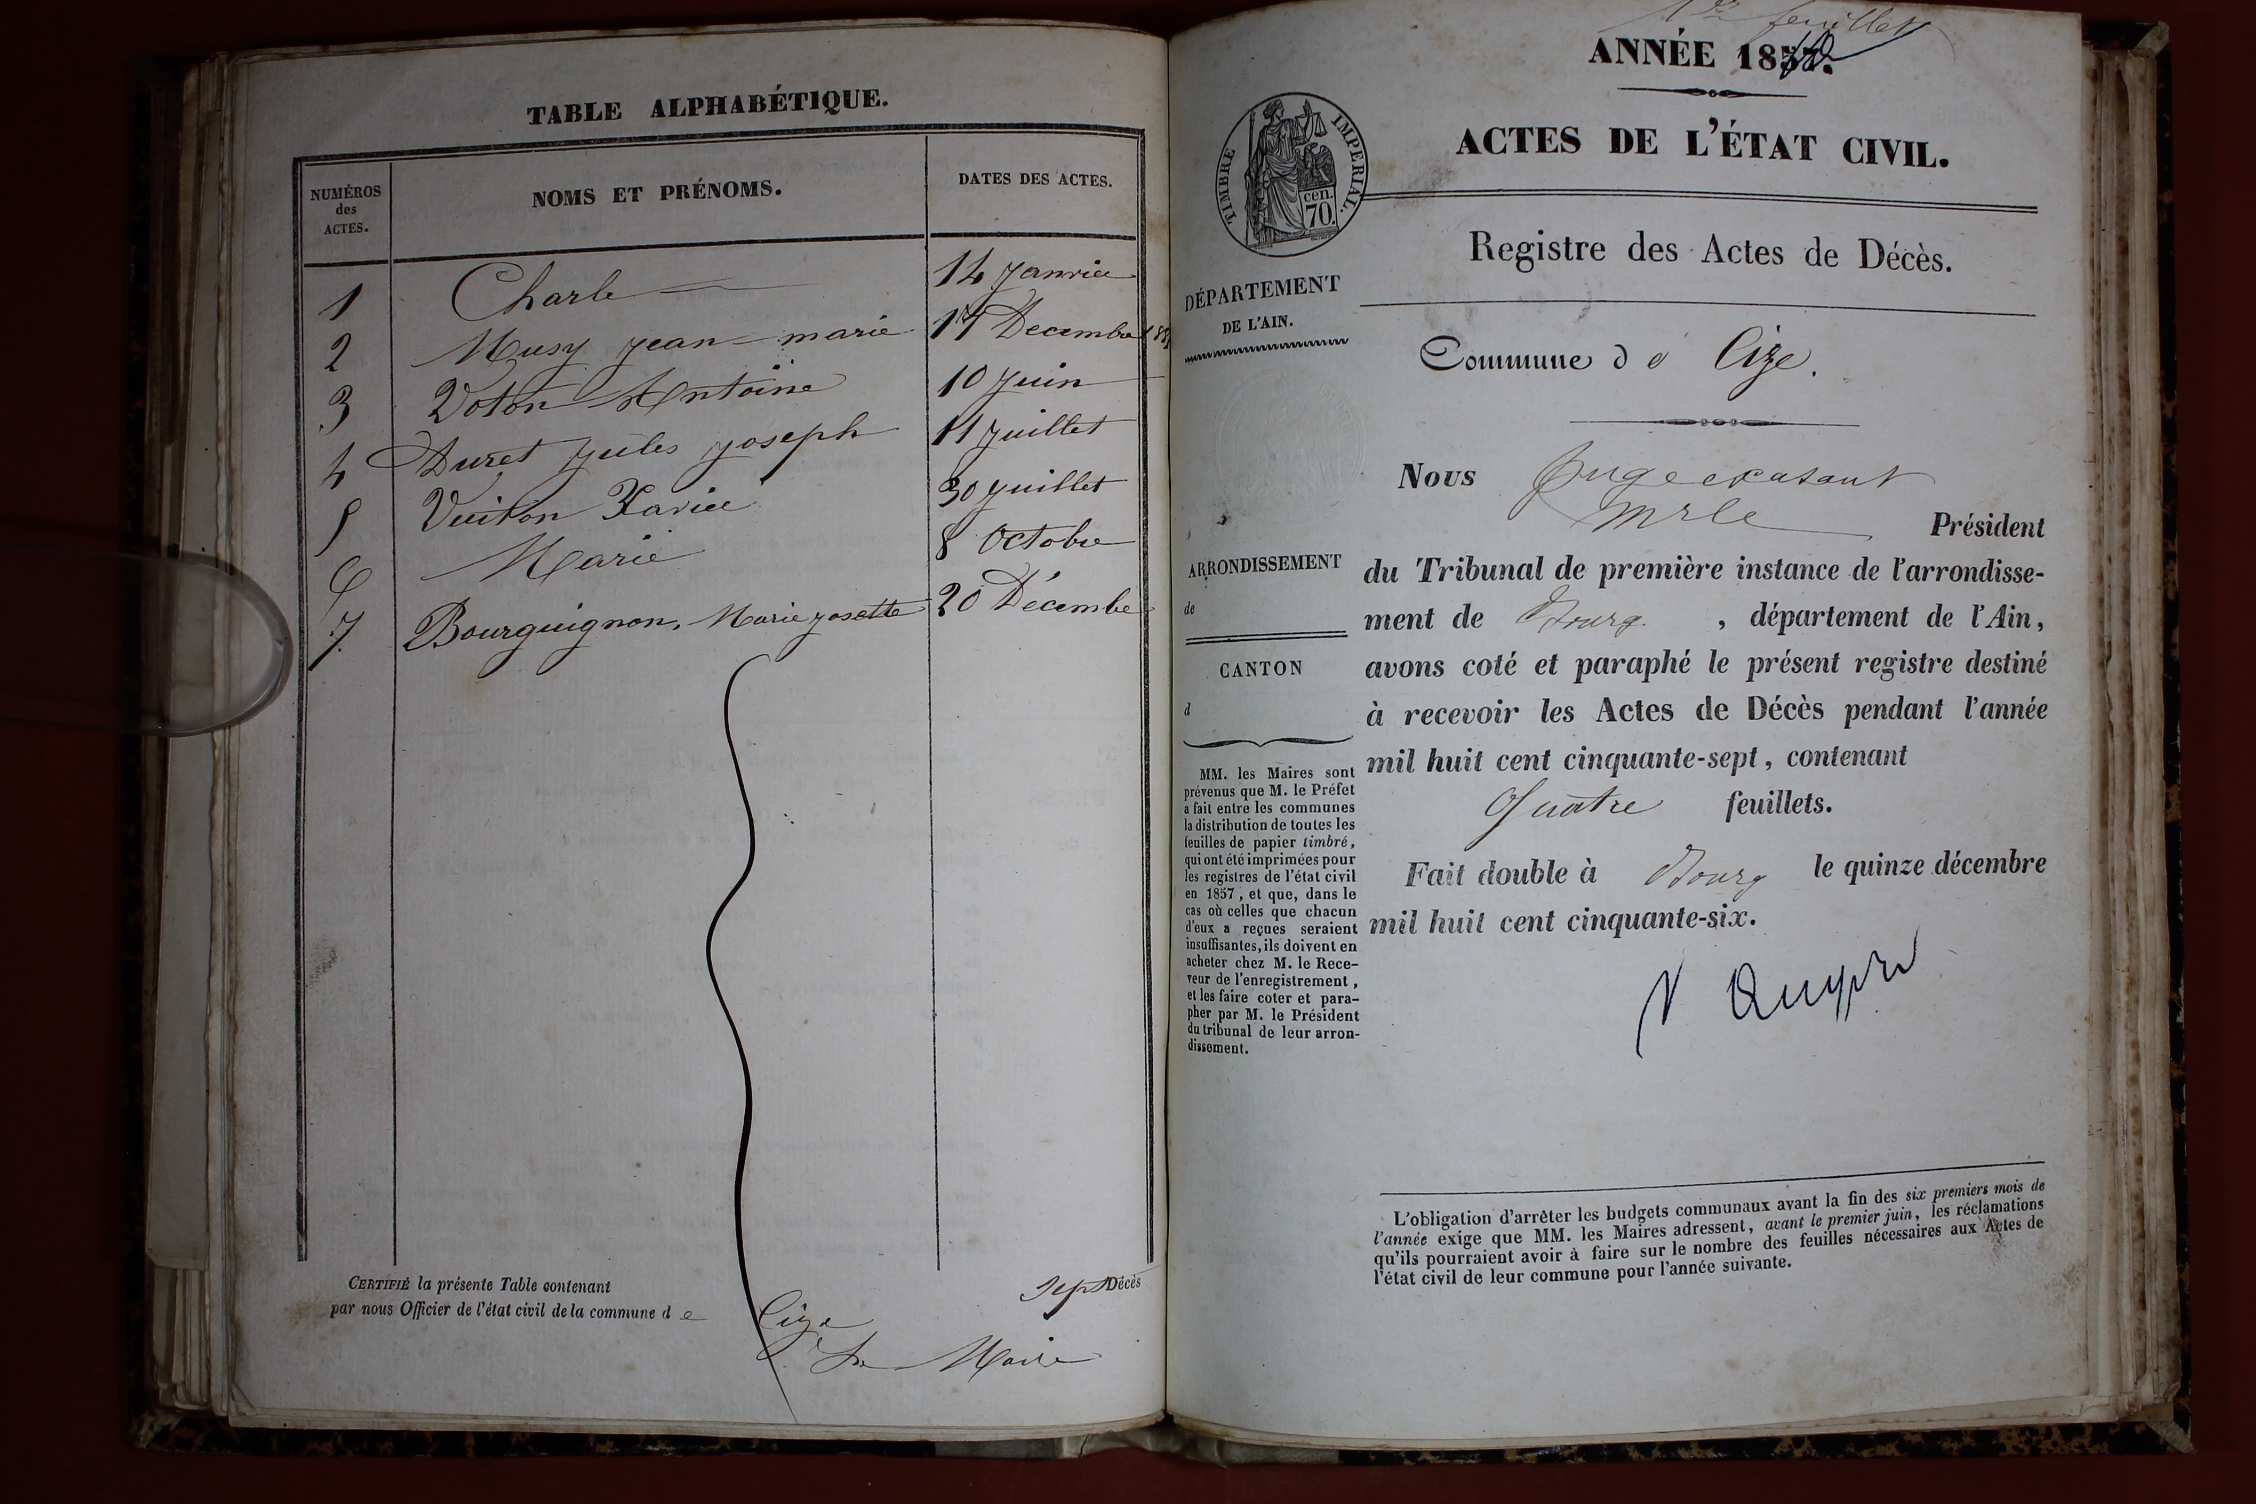 TABLE ALPHABÉTIQUE.
NUMÉROS
des
ACTES.
NOMS ET PRÉNOMS.
DATES DES ACTES.
1 Charle 14 janvier
2 Musy jean-marie 17 Decembre
3 Voton Antoine 10 juin
4 Duret jules joseph 11 juillet
5 Vuiton Xavier 30 juillet
6 Marie 8 Octobre
7. Bourguignon, Marie josette 20 Décembre
CERTIFIÉ la présente Table contenant sept Décès
par nous Officier de l'état civil de la commune de Cize
Le Maire
1er feuillet
ANNÉE 1857.
ACTES DE L'ÉTAT CIVIL.
TIMBRE IMPERIAL.
cen.
70.
Registre des Actes de Décès.
DÉPARTEMENT
DE L'AIN.
Commune de Cize.
Nous Juge
Président
du Tribunal de première instance de l'arrondisse-
ment de Bourg, département de l'Ain,
avons coté et paraphé le présent registre destiné
à recevoir les Actes de Décès pendant l'année
mil huit cent cinquante-sept, contenant
Quatre feuillets.
Fait double à Bourg le quinze décembre
mil huit cent cinquante-six.
ARRONDISSEMENT
de
CANTON
d
MM. les Maires sont
prévenus que M. le Préfet
a fait entre les communes
la distribution de toutes les
feuilles de papier timbré,
qui ont été imprimées pour
les registres de l'état civil
en 1857, et que, dans le
cas où celles que chacun
d'eux a reçues seraient
insuffisantes, ils doivent en
acheter chez M. le Rece-
veur de l'enregistrement,
et les faire coter et para-
pher par M. le Président
du tribunal de leur arron-
dissement.
L'obligation d'arrêter les budgets communaux avant la fin des six premiers mois de
l'année exige que MM. les Maires adressent, avant le premier juin, les réclamations
qu'ils pourraient avoir à faire sur le nombre des feuilles nécessaires aux Actes de
l'état civil de leur commune pour l'année suivante.